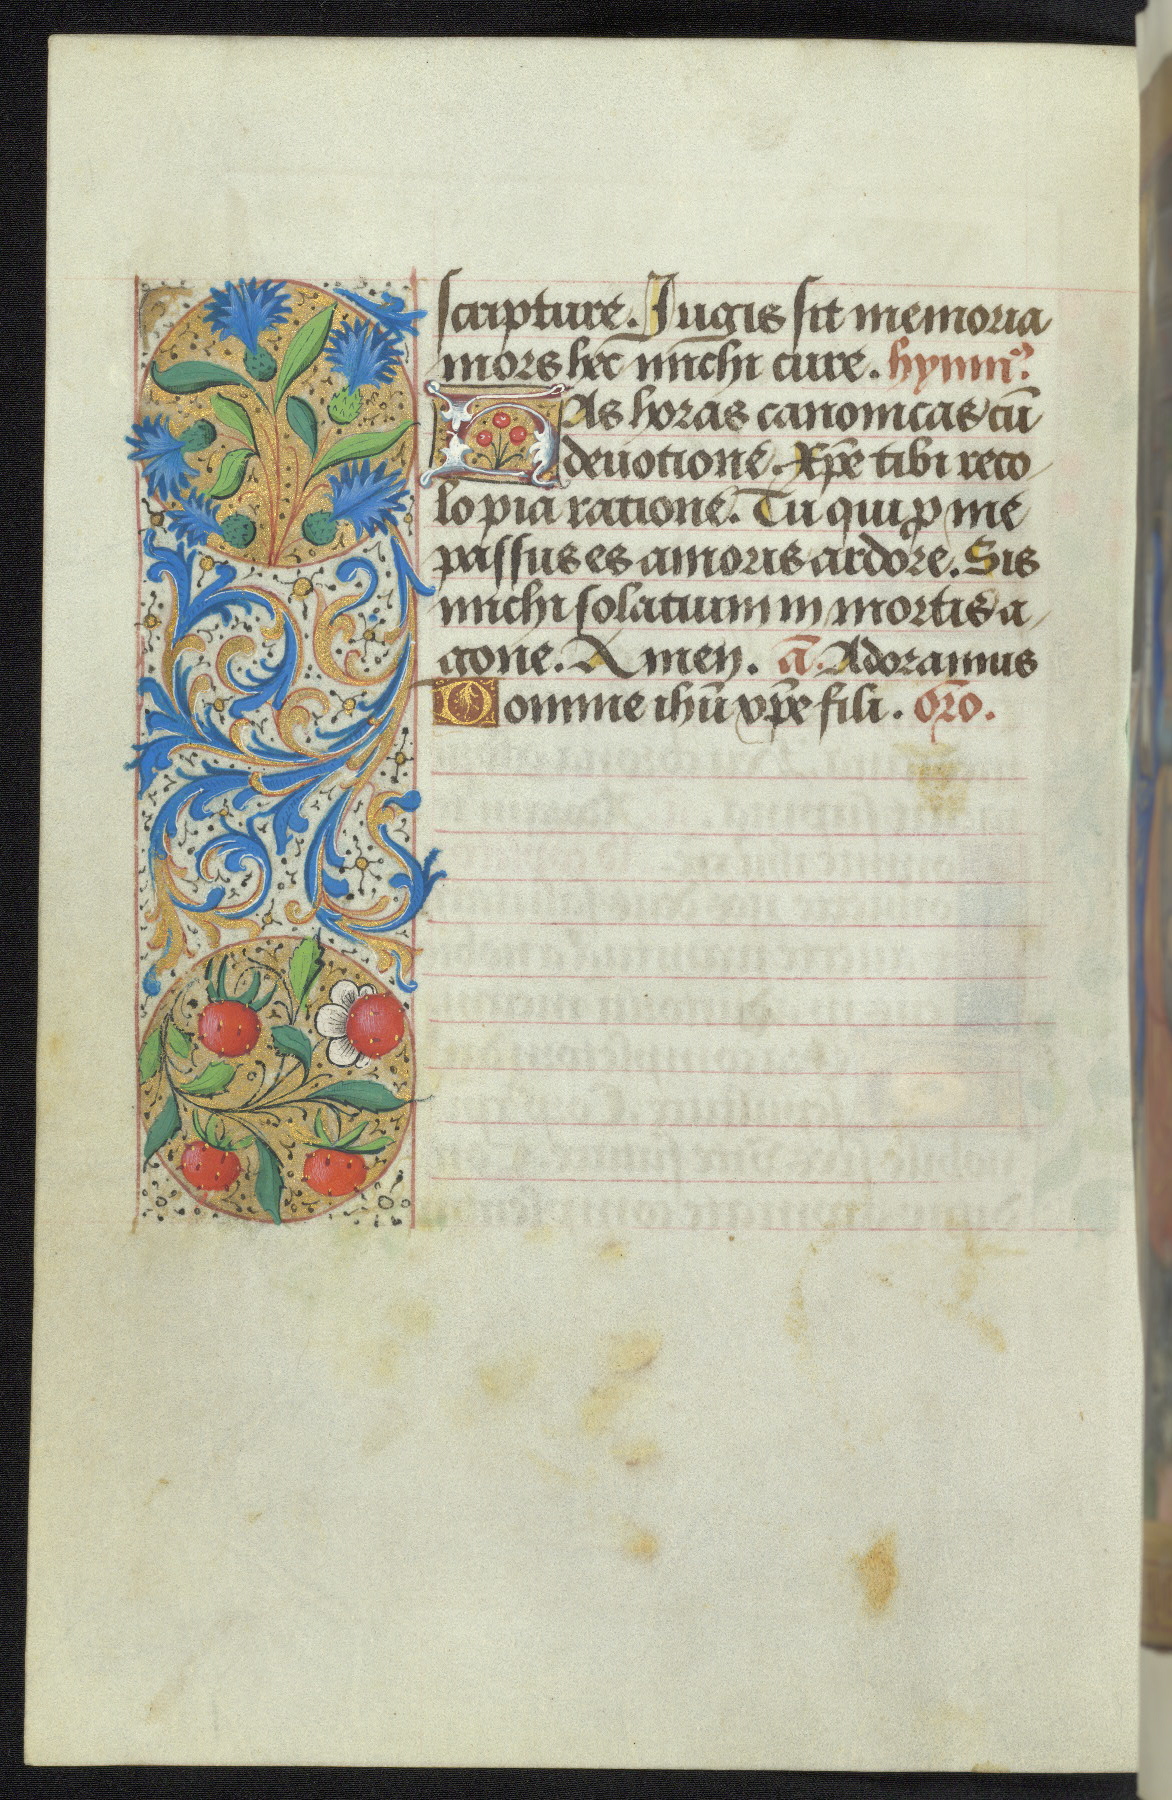 scripture. Jugis sit memoria
mors hec michi cure. hymnꝰ
Has horas canonicas cū
deuotione. Xp̄e tibi reco
lo pia ratione. Tu qui ꝓ me
passus es amoris ardore. Sis
michi solacium in mortis a
gone. Amen. a͞. Adoramus
Domine ihū xp̄e fili. or̄o.